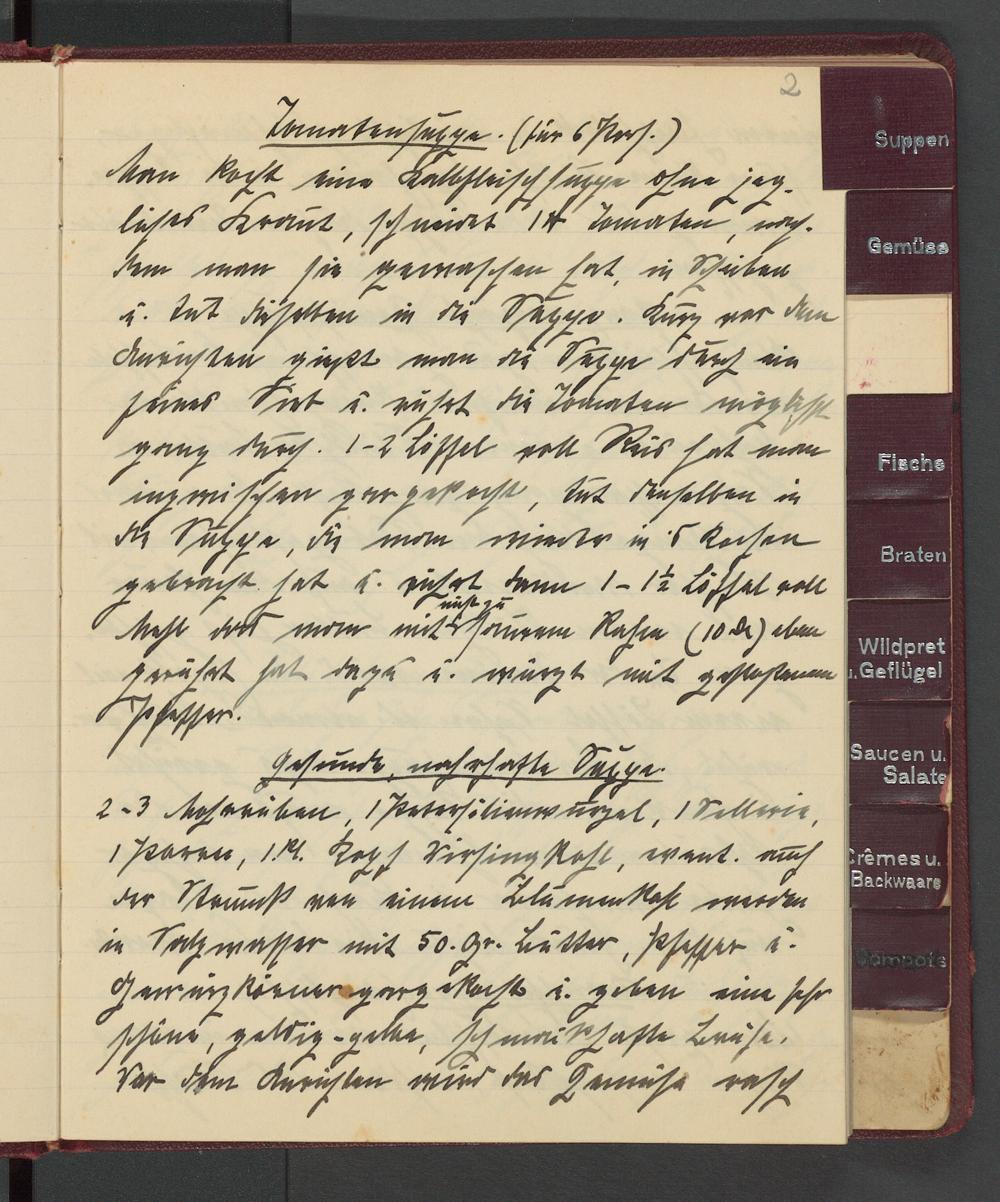 2
Tomatensuppe. (für 6 Pers.)
Man kocht eine Kalbfleischsuppe ohne jeg-
liches Kraut, schneidet 1 ℔ Tomaten, nach-
dem man sie gewaschen hat, in Scheiben
u. tut dieselben in die Suppe. Kurz vor dem
Anrichten gießt man die Suppe durch ein
feines Sieb u. rührt die Tomaten möglichst
ganz durch. 1-2 Löffel voll Reis hat man
inzwischen gar gekocht, tut denselben in
die Suppe, die man wieder in's Kochen
gebracht hat u. rührt dann 1-1½ Löffel voll
Mehl das man mit nicht zu saurem Rahm (10 ₰) eben
gerührt hat dazu u. würzt mit gestoßenem
Pfeffer.
Gesunde, nahrhafte Suppe.
2-3 Mohrrüben, 1 Petersilienwurzel, 1 Sellerie,
1 Porren, 1 kl. Kopf Wirsingkohl, event. auch
der Strunk von einem Blumenkohl werden
in Salzwasser mit 50. Gr. Butter, Pfeffer u.
Gewürzkörner gargekocht u. geben eine sehr
schöne, goldig-gelbe, schmackhafte Brühe.
Vor dem Anrichten wird das Gemüse rasch
Suppen
Gemüse
Fische
Braten
Wildpret
u. Geflügel
Saucen u.
Salate
Crêmes u.
Backwaare
Compots